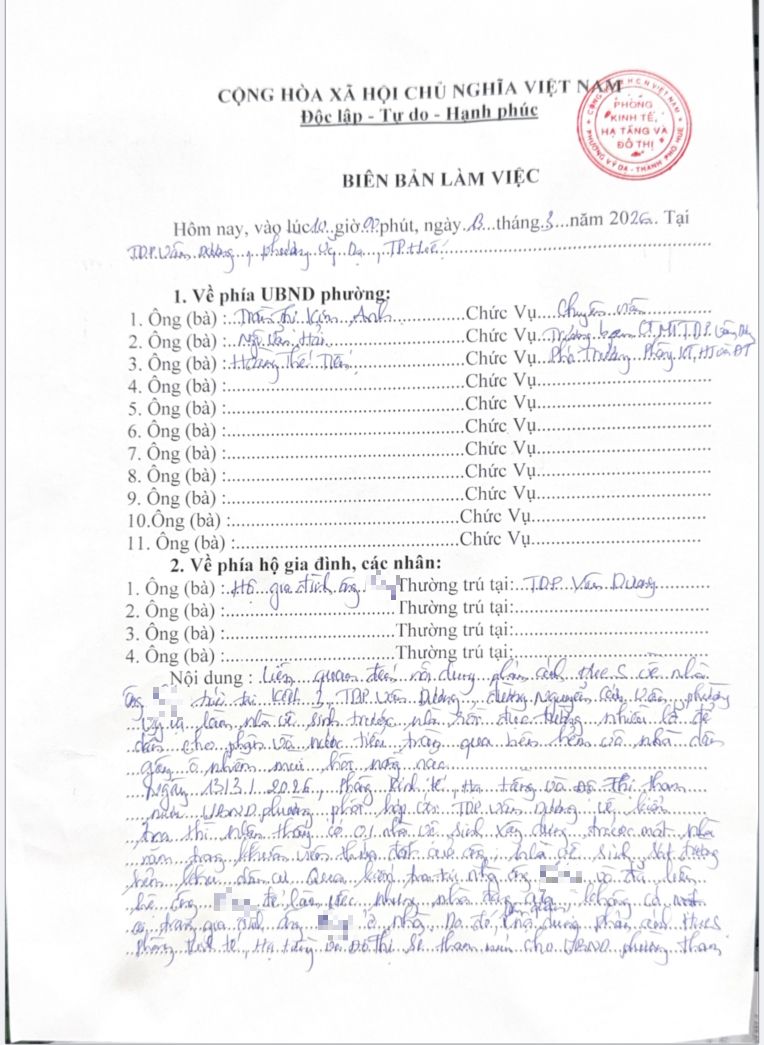 CỘNG HÒA XÃ HỘI CHỦ NGHĨA VIỆT NAM
Độc lập - Tự do - Hạnh phúc
PHÒNG
KINH TẾ,
HẠ TẦNG VÀ
ĐÔ THỊ
PHƯỜNG VỸ DẠ - THÀNH PHỐ HUẾ
BIÊN BẢN LÀM VIỆC
Hôm nay, vào lúc 10 giờ 00 phút, ngày 13 tháng 3 năm 2026. Tại
TDP Vân Dương, phường Vỹ Dạ, TP Huế.
1. Về phía UBND phường:
1. Ông (bà) : Trần Thị Kim Anh Chức Vụ Chuyên viên
2. Ông (bà) : Ngô Văn Hải Chức Vụ Trưởng ban CTMT TDP Vân Dương
3. Ông (bà) : Hoàng Thế Tiến Chức Vụ Phó Trưởng Phòng KT, HT và ĐT
4. Ông (bà) : Chức Vụ
5. Ông (bà) : Chức Vụ
6. Ông (bà) : Chức Vụ
7. Ông (bà) : Chức Vụ
8. Ông (bà) : Chức Vụ
9. Ông (bà) : Chức Vụ
10.Ông (bà) : Chức Vụ
11. Ông (bà) : Chức Vụ
2. Về phía hộ gia đình, các nhân:
1. Ông (bà) : Hộ gia đình ông Thường trú tại: TDP Vân Dương
2. Ông (bà) : Thường trú tại:
3. Ông (bà) : Thường trú tại:
4. Ông (bà) : Thường trú tại:
Nội dung : Liên quan đến nội dung phản ánh HueS về nhà
ông trú tại 2, TDP Vân Dương, đường Nguyễn phường
Vỹ Dạ làm nhà vệ sinh trước nhà đục tường nhiều lỗ để
dẫn cho phân và nước tiểu tràn qua bên hẻm và nhà dân
gây ô nhiễm mùi hôi nặng
Ngày 13/3/2026, Phòng Kinh tế, Hạ tầng và Đô Thị tham
mưu UBND phường phối hợp TDP Vân Dương về kiểm
tra thì nhận thấy có 01 nhà vệ sinh xây dựng trước mặt nhà
nằm trong khuôn viên thửa đất của ông, nhà vệ sinh sát đường
hẻm khu dân cư. Qua kiểm tra tại nhà ông và đã liên
hệ ông để làm việc nhưng nhà đóng cửa, không có
ai trong gia đình ông ở nhà. Do đó, nội dung phản ánh HueS
Phòng Kinh tế, Hạ tầng và Đô Thị sẽ tham mưu cho UBND phường tham